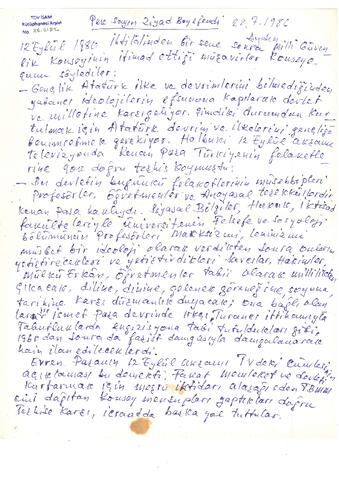 TDV İSAM
Kütüphanesi Arşivi
No
Pek sayın Ziyad Beyefendi 22.7.1986
12 Eylül 1980 İhtilâlinden bir sene sonra Milli Güven-
lik Konseyinin itimad ettiği müşavirler Konseye
şunu söylediler:
- Gençlik Atatürk ilke ve devrimlerini bilmediğinden
yabancı ideolojilerin efsununa kapılarak devlet
ve milletine karşı geliyor. Şimdiki durumdan kur-
tulmak için Atatürk devrim ve ilkelerini gençliğe
benimsetmek gerekiyor. Halbuki 12 Eylül akşamı
televizyonda Kenan Paşa Türkiyenin felaketle-
rine çok doğru teşhis koymuştu:
- Bu devletin bugünkü felaketlerinin müsebbipleri
Profesörler, Öğretmenler ve Anayasal teşekküllerdir
Kenan paşa haklıydı. Siyasal Bilgiler, Hukuk, İktisad
fakülteleriyle Üniversitenin Felsefe ve sosyoloji
bölümünün Profesörleri Marksizmi, Leninizmi
müsbet bir ideoloji olarak verdikten sonra onların
yetiştirecekleri ve yetiştirdikleri Savcılar, Hakimler,
Mülkü Erkân, Öğretmenler tabii olarak milliliğe
çıkacak, diline, dinine, gelenek göreneğine, soyuna,
tarihine karşı düşmanlık duyacak; ona bağlı olan
ları İsmet paşa devrinde ırkçı Turancı ittihamıyla
Tabutluklarda engizisyona tabi tutuldukları gibi,
1980 den sonra da faşist damgasıyla damgalanarak
hain ilan edileceklerdi.
Evren Paşanın 12 Eylül akşamı TVdeki cümleciği
açıklaması bu demekti. Fakat memleket ve devleti
Kurtarmak için meşru iktidarı alaşağı eden TBMM
sini dağıtan Konsey mensupları yaptıkları doğru
teşhise karşı, icraatda başka yol tuttular.